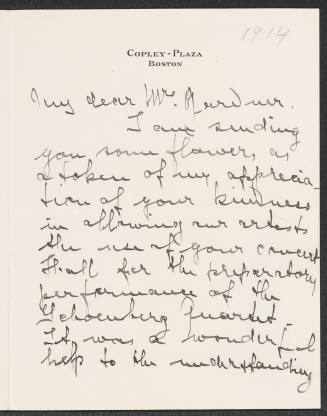 1914
COPLEY-PLAZA
BOSTON
My dear Mrs. Gardner.
I am sending
you some flowers as
a token of my apprecia-
tion of your kindness
in allowing our artists
the use of your concert
Hall for the preparatory
performance of the
Schoenberg Quartet -
It was a wonderful
help to the understanding